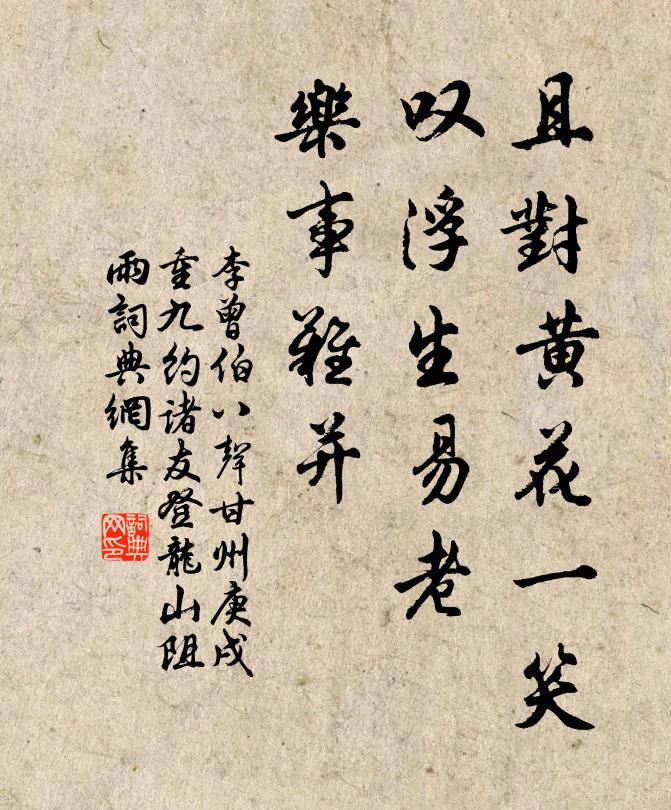 且對黄花一笑
叹浮生易老
樂事難并
李曾伯八聲甘州庚戌
重九約诸友登龍山阻
雨詞典網集
詞典
网印